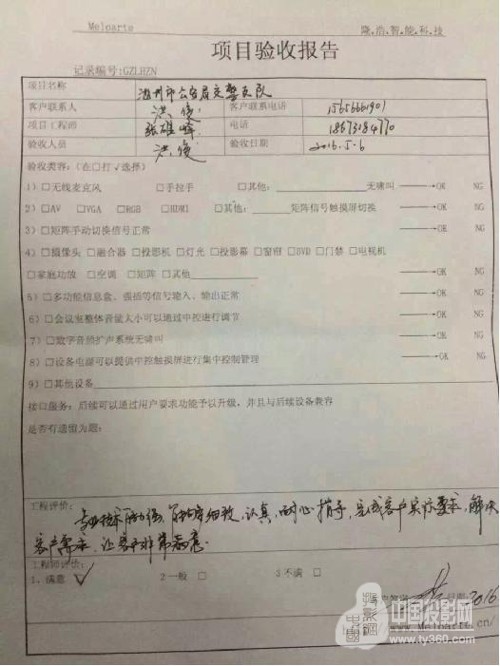 Meloarte 隆.浩.智.能.科.技
项目验收报告
记录编号:GZLHZN
项目名称 池州市公安局交警支队
客户联系人 洪俊 客户联系电话 15656661901
项目工程师 张雄峰 电话 18673184770
验收人员 洪俊 验收日期 2016.5.6
验收类容:(在□打√选择)
1)□无线麦克风 □手拉手 □其他: 无啸叫 OK NG
2)□AV □VGA □RGB □HDMI □其他: 矩阵信号触摸屏切换 OK NG
3)□矩阵手动切换信号正常 OK NG
4)□摄像头 □融合器 □投影机 □灯光 □投影幕 □窗帘 □DVD □门禁 □电视机
□家庭功放 □空调 □矩阵 □其他 OK NG
5)□多功能信息盒、强插等信号输入、输出正常 OK NG
6)□会议室整体音量大小可以通过中控进行调节 OK NG
7)□数字音频扩声系统无啸叫 OK NG
8)□设备电源可以提供中控触摸屏进行集中控制管理 OK NG
9)□其他设备 OK NG
接口服务:后续可以通过用户要求功能予以升级,并且与后续设备兼容
是否有遗留为题:
工程评价:
专业技术能力强,认真,耐心指导,完成客户实际要求,解决
客户需求,让客户非常满意.
工程师评价:
1、满意 √ 2 一般 □ 3 不满 □
日期: 2016
中国投影网
www.ty360.com